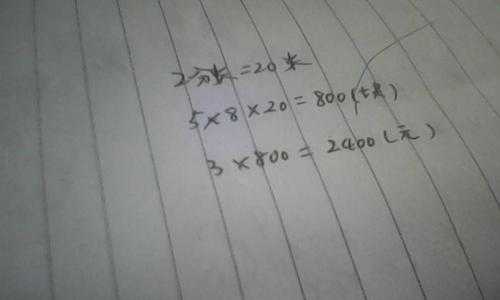 2分米=20米
5×8×20=800(块)
3×800=2400(元)